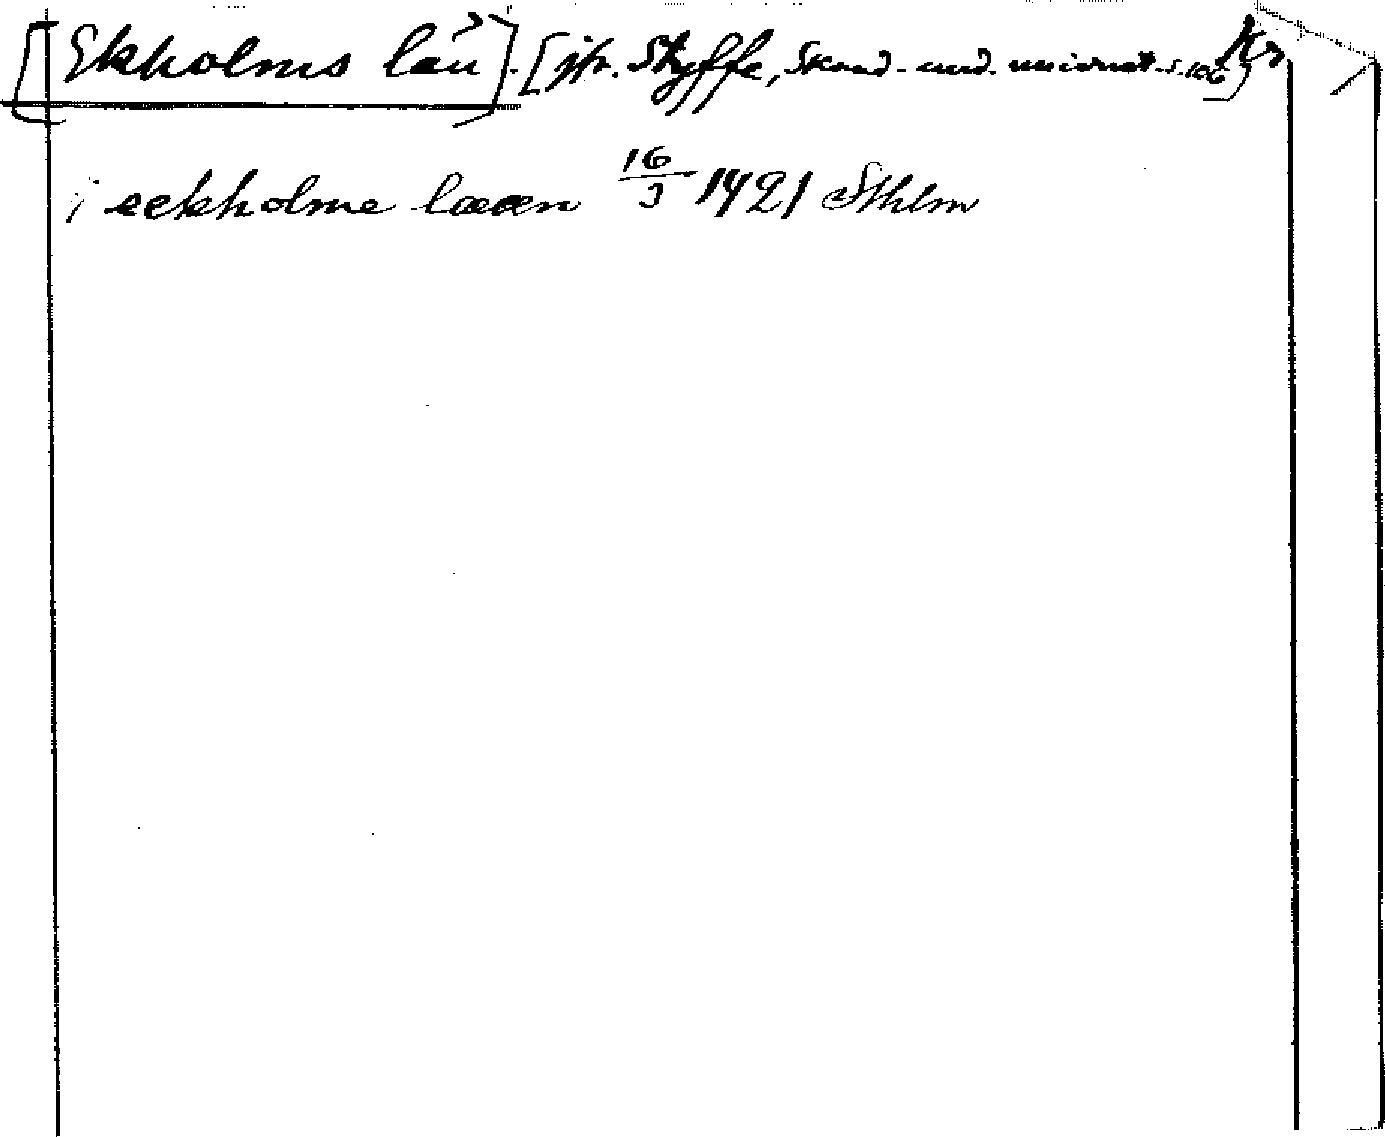 [Ekholms län]. [jfr. Styffe, Skand. und. unionst. s. 106]
i eekholme lææn 16/3 1421 Sthlm